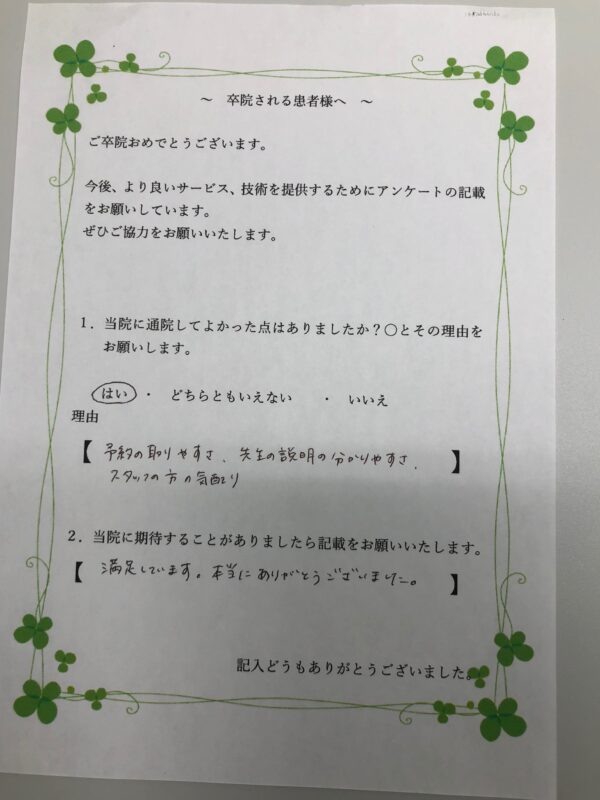 ～　卒院される患者様へ　～
ご卒院おめでとうございます。
今後、より良いサービス、技術を提供するためにアンケートの記載
をお願いしています。
ぜひご協力をお願いいたします。
1．当院に通院してよかった点はありましたか？〇とその理由を
お願いします。
はい　・　どちらともいえない　　・　いいえ
理由
【 予約の取りやすさ、先生の説明の分かりやすさ、 】
スタッフの方の気配り
2．当院に期待することがありましたら記載をお願いいたします。
【 満足しています。本当にありがとうございました。 】
記入どうもありがとうございました。